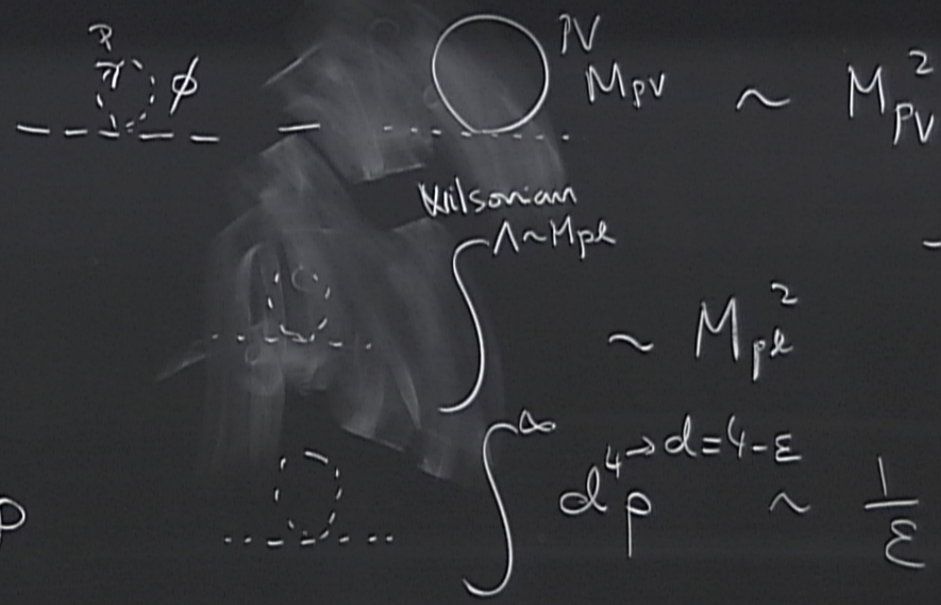 P
π ϕ PV
M_PV ~ M_PV^2
Wilsonian
∫^Λ~M_pl ~ M_pl^2
∫^∞ d^{4→d=4-ε} p ~ 1/ε
p